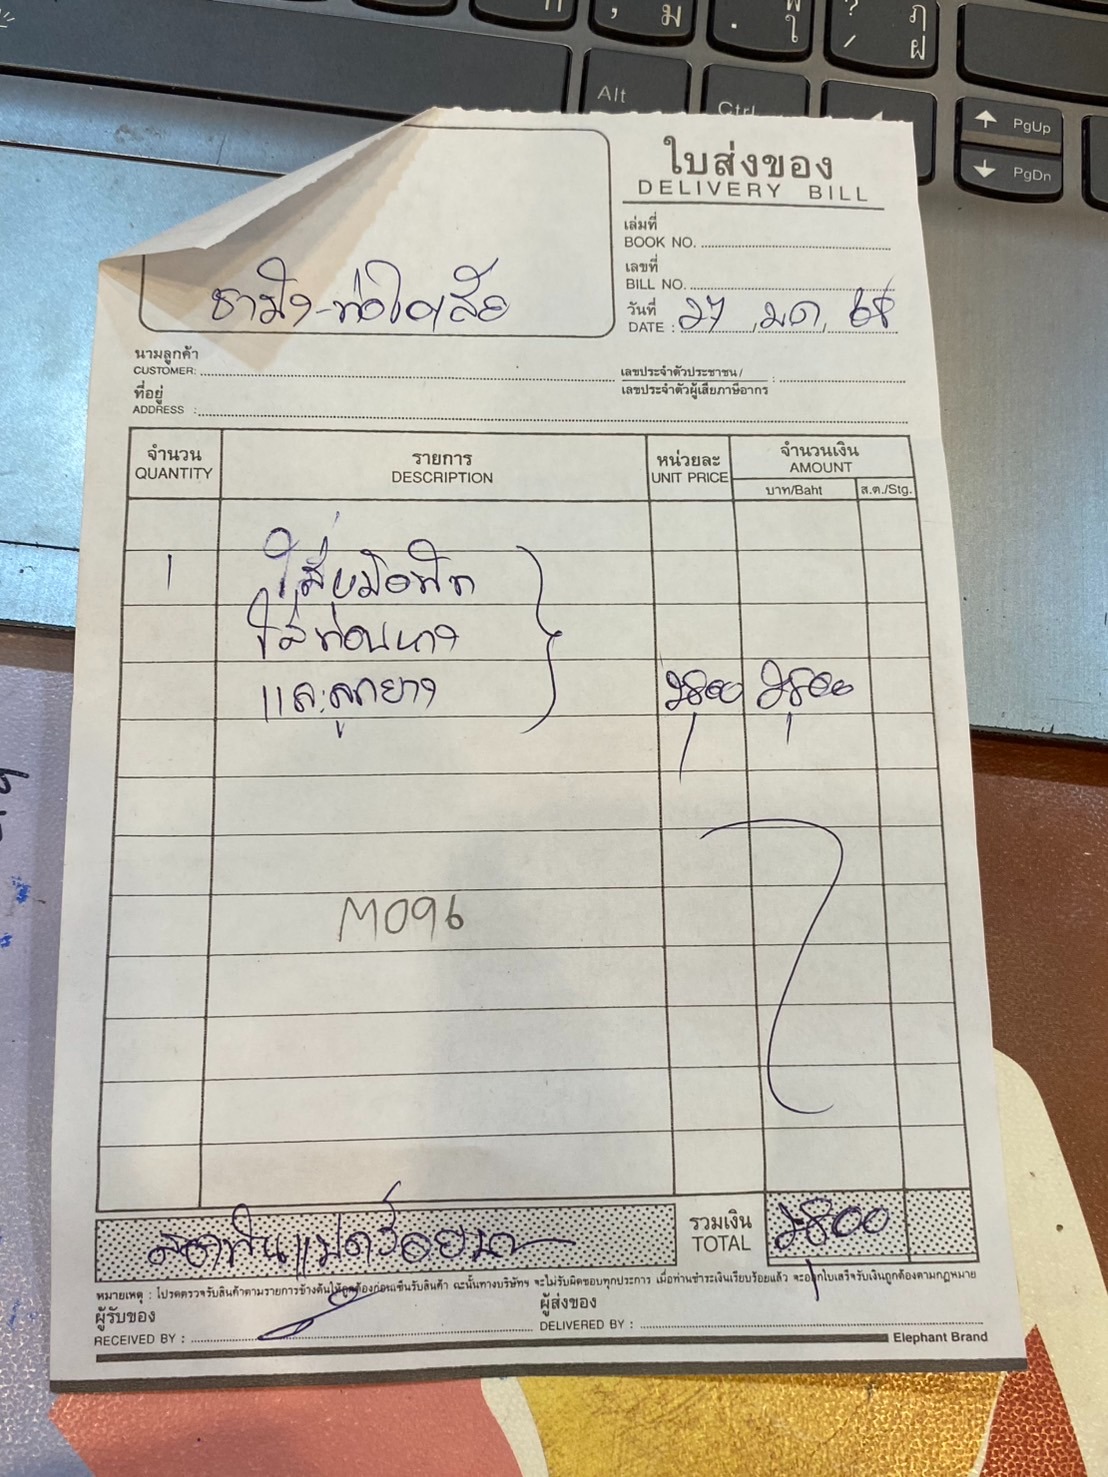 ใบส่งของ
DELIVERY BILL
เล่มที่
BOOK NO.
เลขที่
BILL NO.
วันที่
DATE : 27 ม.ค. 68
ธานี-ท่อไอเสีย
นามลูกค้า
CUSTOMER:
เลขประจำตัวประชาชน /
เลขประจำตัวผู้เสียภาษีอากร :
ที่อยู่
ADDRESS :
จำนวน รายการ หน่วยละ จำนวนเงิน
QUANTITY DESCRIPTION UNIT PRICE AMOUNT
บาท/Baht ส.ต./Stg.
1 ใส่หม้อพัก
ใส่ท่อนหาง
และลูกยาง 2800 2800
M096
สองพันแปดร้อยบาท
รวมเงิน
TOTAL 2800
หมายเหตุ : โปรดตรวจรับสินค้าตามรายการข้างต้นให้ถูกต้องก่อนเซ็นรับสินค้า ฉะนั้นทางบริษัทฯ จะไม่รับผิดชอบทุกประการ เมื่อท่านชำระเงินเรียบร้อยแล้ว จะออกใบเสร็จรับเงินถูกต้องตามกฎหมาย
ผู้รับของ
RECEIVED BY :
ผู้ส่งของ
DELIVERED BY :
Elephant Brand
Alt
Ctrl
PgUp
PgDn